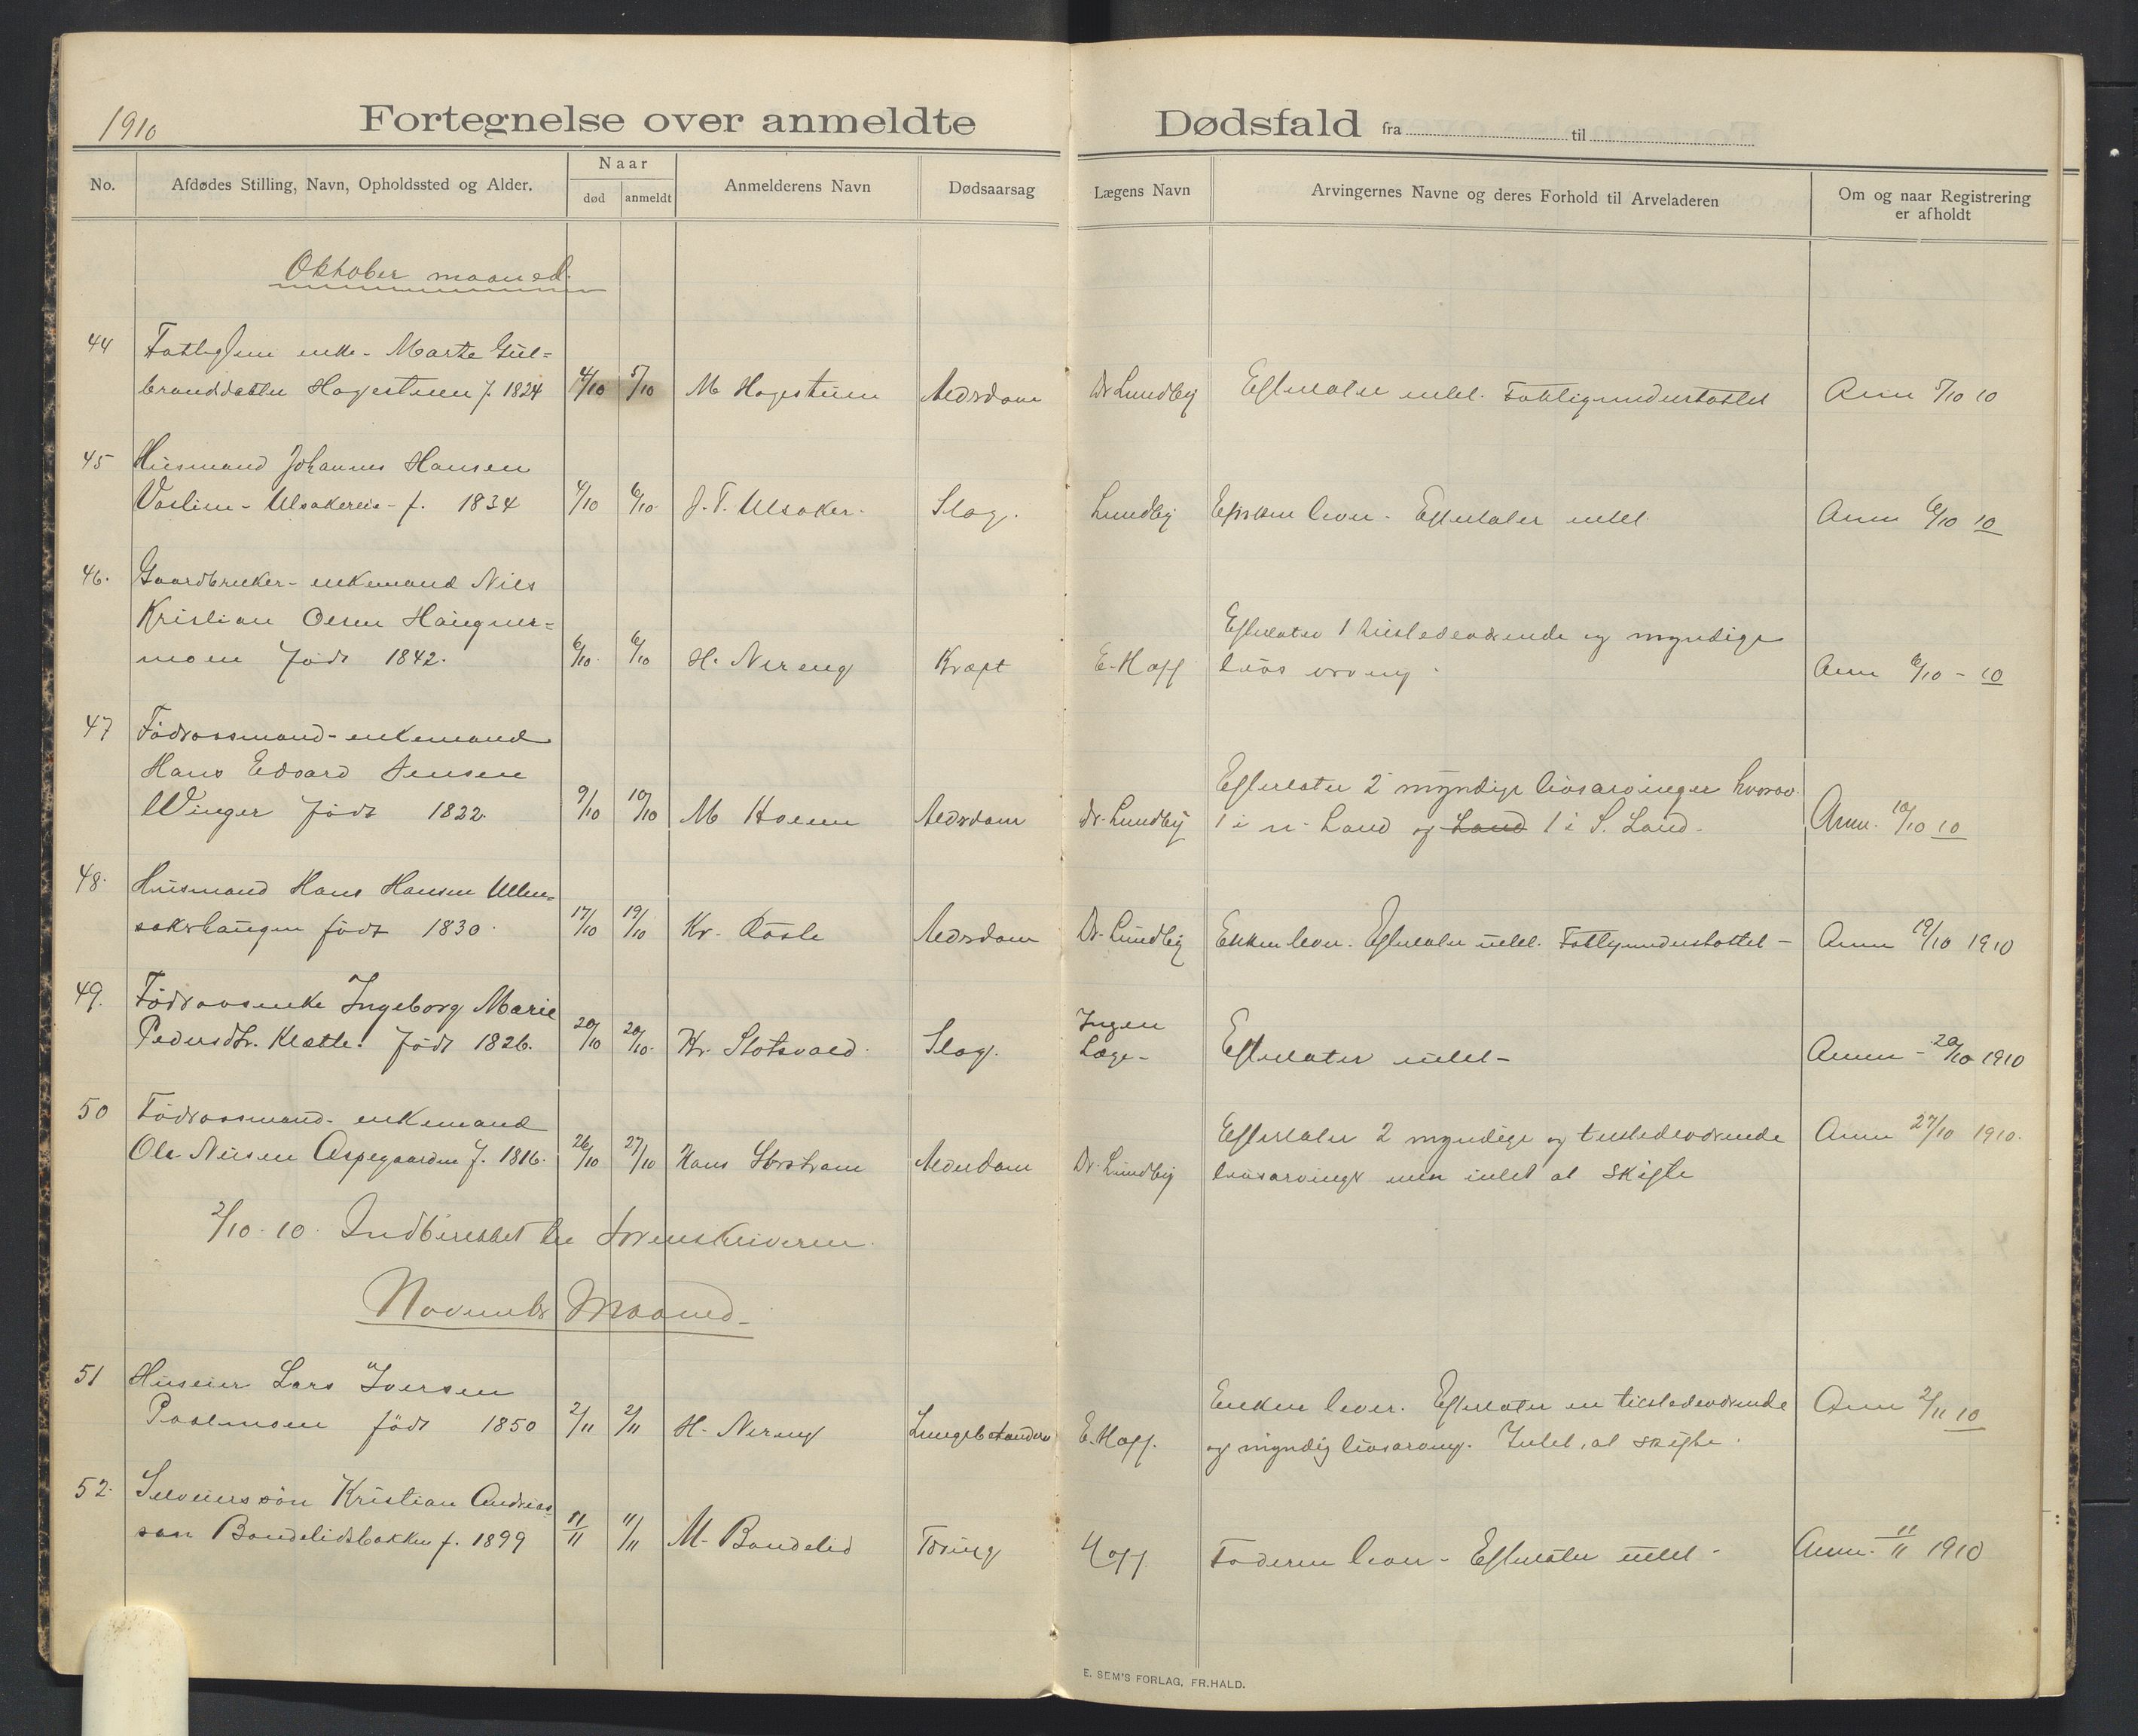 1910
Fortegnelse over anmeldte Dødsfald fra til
No.
Afdødes Stilling, Navn, Opholdssted og Alder.
Naar
død anmeldt
Anmelderens Navn
Dødsaarsag
Lægens Navn
Arvingernes Navne og deres Forhold til Arveladeren
Om og naar Registrering
er afholdt
Oktober maaned.
44 enke - Marte Gul=
branddatter Hagestuen f. 1824 4/10 5/10 M Hagestuen Aldrdom Dr Lundby Efterlater intet. Fattigunderstøttet Anm 5/10 10
45 Husmand Johannes Hansen
- Ulsakereie - f. 1834 4/10 6/10 J. T. Ulsaker. Slag. Lundby Enken lever. Efterlater intet Anm 6/10 10
46. Gaardbruker - enkemand Nils
Kristian Olsen Haugner=
moen født 1842. 6/10 6/10 H. Nereng Kræft E. Hoff Efterlater 1 tilstedeværende og myndige
livsarving. Anm 6/10 - 10
47 Föderaasmand - enkemand
Hans Edvard Jensen
Winger født 1822. 9/10 10/10 M Hoenn Aldrdom dr. Lundby Efterlater 2 myndige livsarvinger hvorav
1 i n. Land og Land 1 i S. Land. Anm. 10/10 10
48. Husmand Hans Hansen Ullen=
sakrhaugen født 1830. 17/10 19/10 Kr. Aldrdom Dr. Lundby Enken lever. Efterlater intet. Fattigunderstøttet - Anm 19/10 1910
49. Föderaadsenke Ingeborg Marie
Pedersdtr. Klætte. født 1826. 20/10 20/10 Kr. Slotsvold. Slag. Ingen
Læge - Efterlater intet - Anm - 20/10 1910
50 Föderaasmand - enkemand
Ole Nilsen Aspegaarden f. 1816. 26/10 27/10 Hans Alderdom Dr. Lundby Efterlater 2 myndige og tilstedeværende
livsarvinger men intet at skifte Anm 27/10 1910.
2/10. 10. Indberettet til sorenskriveren.
November Maaned -
51 Huseier Lars Iversen
født 1850 2/11 2/11 H. Nereng Lungebetændelse E. Hoff. Enken lever. Efterlater en tilstedeværende
og myndig livsarving. Intet at skifte. Anm 2/11 10
52. Selveierssön Kristian Andreas
sen Bondelidsbakken f. 1899 11/11 11/11 M. Bondelid Tæring Hoff Faderen lever - Efterlater intet - Anm. 11/11 1910
E. SEM'S FORLAG, FR.HALD.